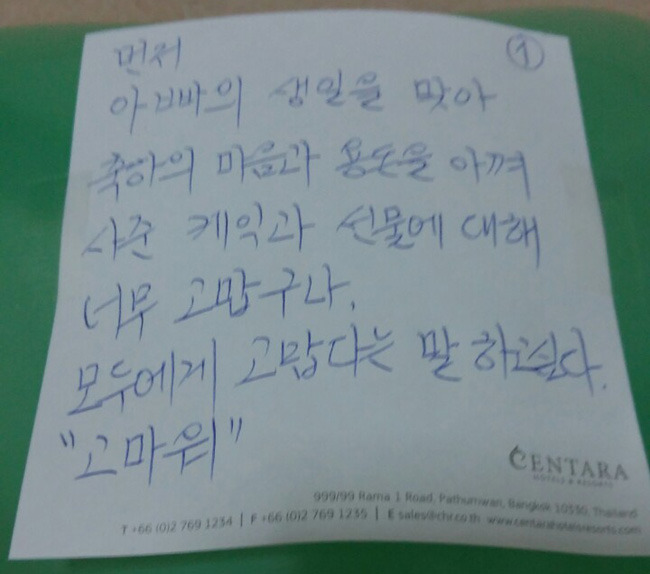 먼저
①
아빠의 생일을 맞아
축하의 마음과 용돈을 아껴
사준 케익과 선물에 대해
너무 고맙구나,
모두에게 고맙다는 말 하고싶다.
"고마워"
CENTARA
HOTELS & RESORTS
999/99 Rama 1 Road, Pathumwan, Bangkok 10330, Thailand
T +66 (0)2 769 1234 | F +66 (0)2 769 1235 | E sales@chr.co.th www.centarahotelsresorts.com